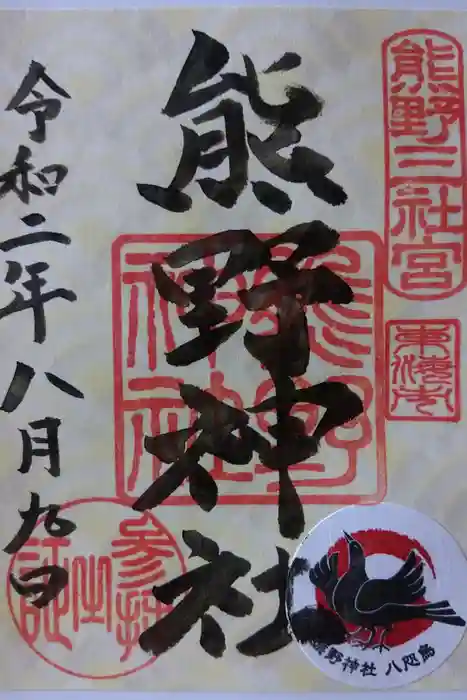 熊野三社宮
東海市
熊野神社
熊野
神社
令和二年八月九日
参拝
之
証
熊野神社 八咫烏